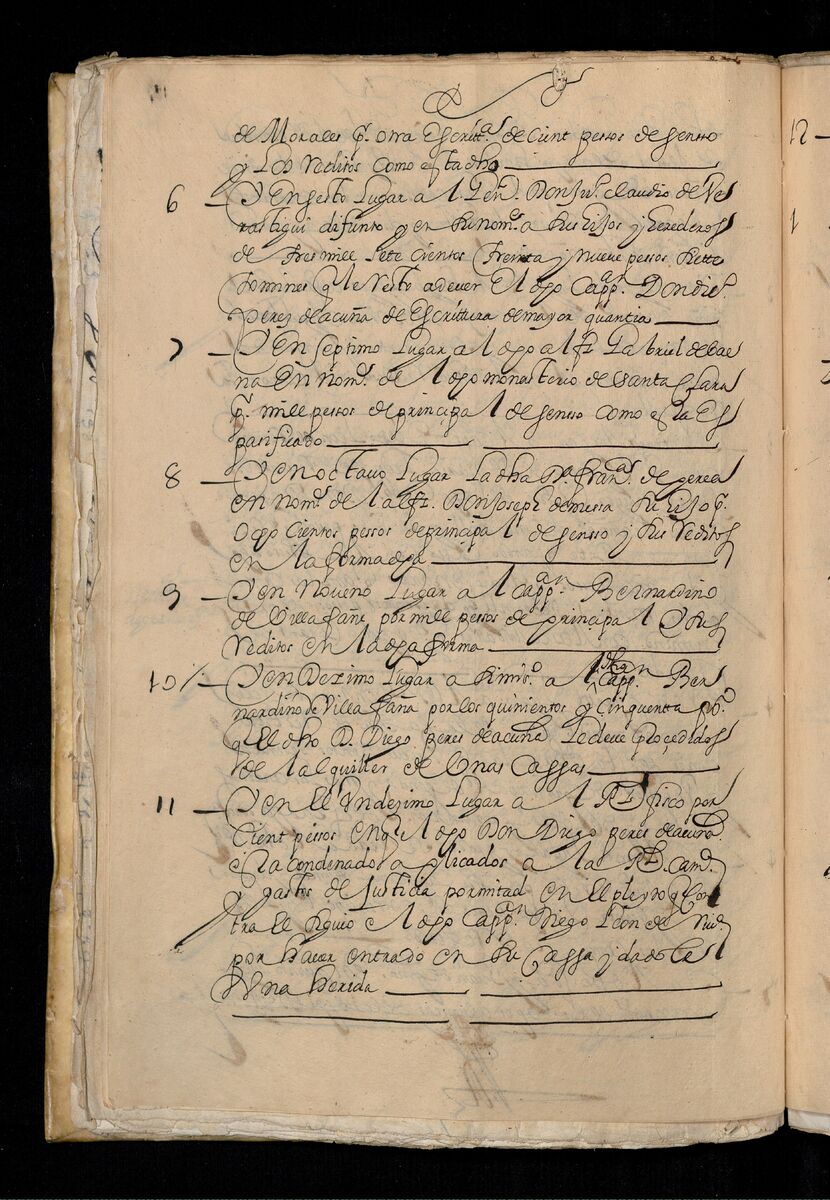 de Morales pr. otra Escritta. de cient pessos de sensso
y los Reditos como esta dho
6 — Y En sesto Lugar a l Gen.l Don Ju.o claudio de Ve
rastigui difunto y en su nom.e a sus Hijos y herederos
de tres mill sete cientos treinta y nueve pessos siette
tomines q le Resto a dever El dho Capp.an Don di.o
Peres de acuña de Escrittura de mayor quantia
7 — Y En septimo Lugar a l dho alf.z Gabriel de bae
na En nom.e de l dho monasterio de santa Clara
pr. mill pessos de principa l de sensso como esta Es
pasificado
8 — Y en octavo Lugar La dha Da. Fran.ca de perea
en nom.e de l alf.z Don Joseph de mussa su Hijo pr.
Ocho cientos pessos de principa l de sensso y sus Reditos
en la forma dha
9 — Y en Noueno Lugar a l capp.an Bernardino
de Villafañe por mill pessos de principa l Y sus
Reditos en la dha forma
10/ — Y en Dezimo Lugar a simis.o a l dho Capp.an Ber
nardino de Villa faña por los quinientos y Cinquenta ps.
q El dho D. Diego peres de acuña Le deve proçedidos
de l alquiller de Unas Cassas
11 — Y en El Undezimo Lugar a l Rl. fisco por
Cient pessos en q El dho Don Diego peres de acuña
esta condenado a plicados a la Rl. Cam.a
y gastos de Justicia por mitad en El pleyto q Con
tra El siguio el dho Capp.an Diego Leon de
por haver entrado en su Cassa y dadole
Una herida